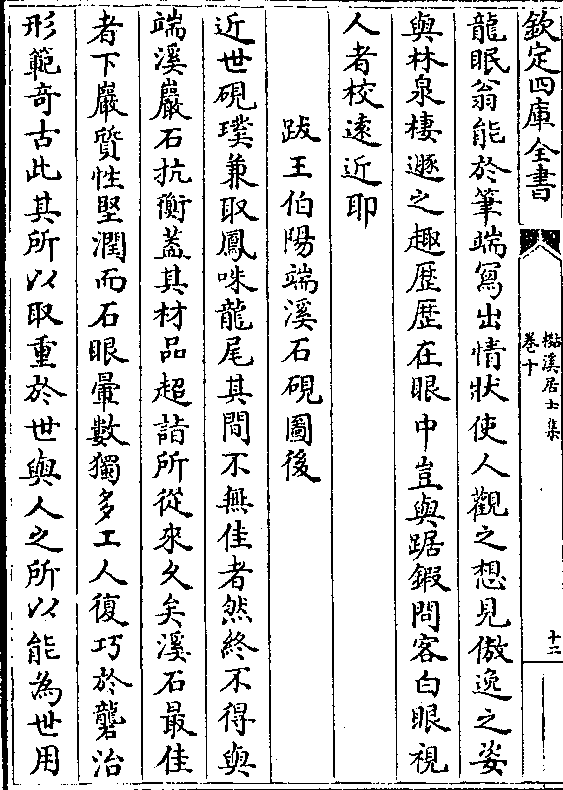 欽定四庫全書
樀溪居士集
卷十
十二
龍眠翁能於筆端寫出情狀使人觀之想見傲逸之姿
與林泉棲遯之趣歴歴在眼中豈與踞鍜問客白眼視
人者校逺近耶
跋王伯陽端溪石硯圖後
近世硯璞兼取鳳咮龍尾其間不無佳者然終不得與
端溪巖石抗衡葢其材品超詣所從來久矣溪石最佳
者下巖質性堅潤而石眼暈數獨多工人復巧於礱治
形範竒古此其所以取重於世與人之所以能為世用